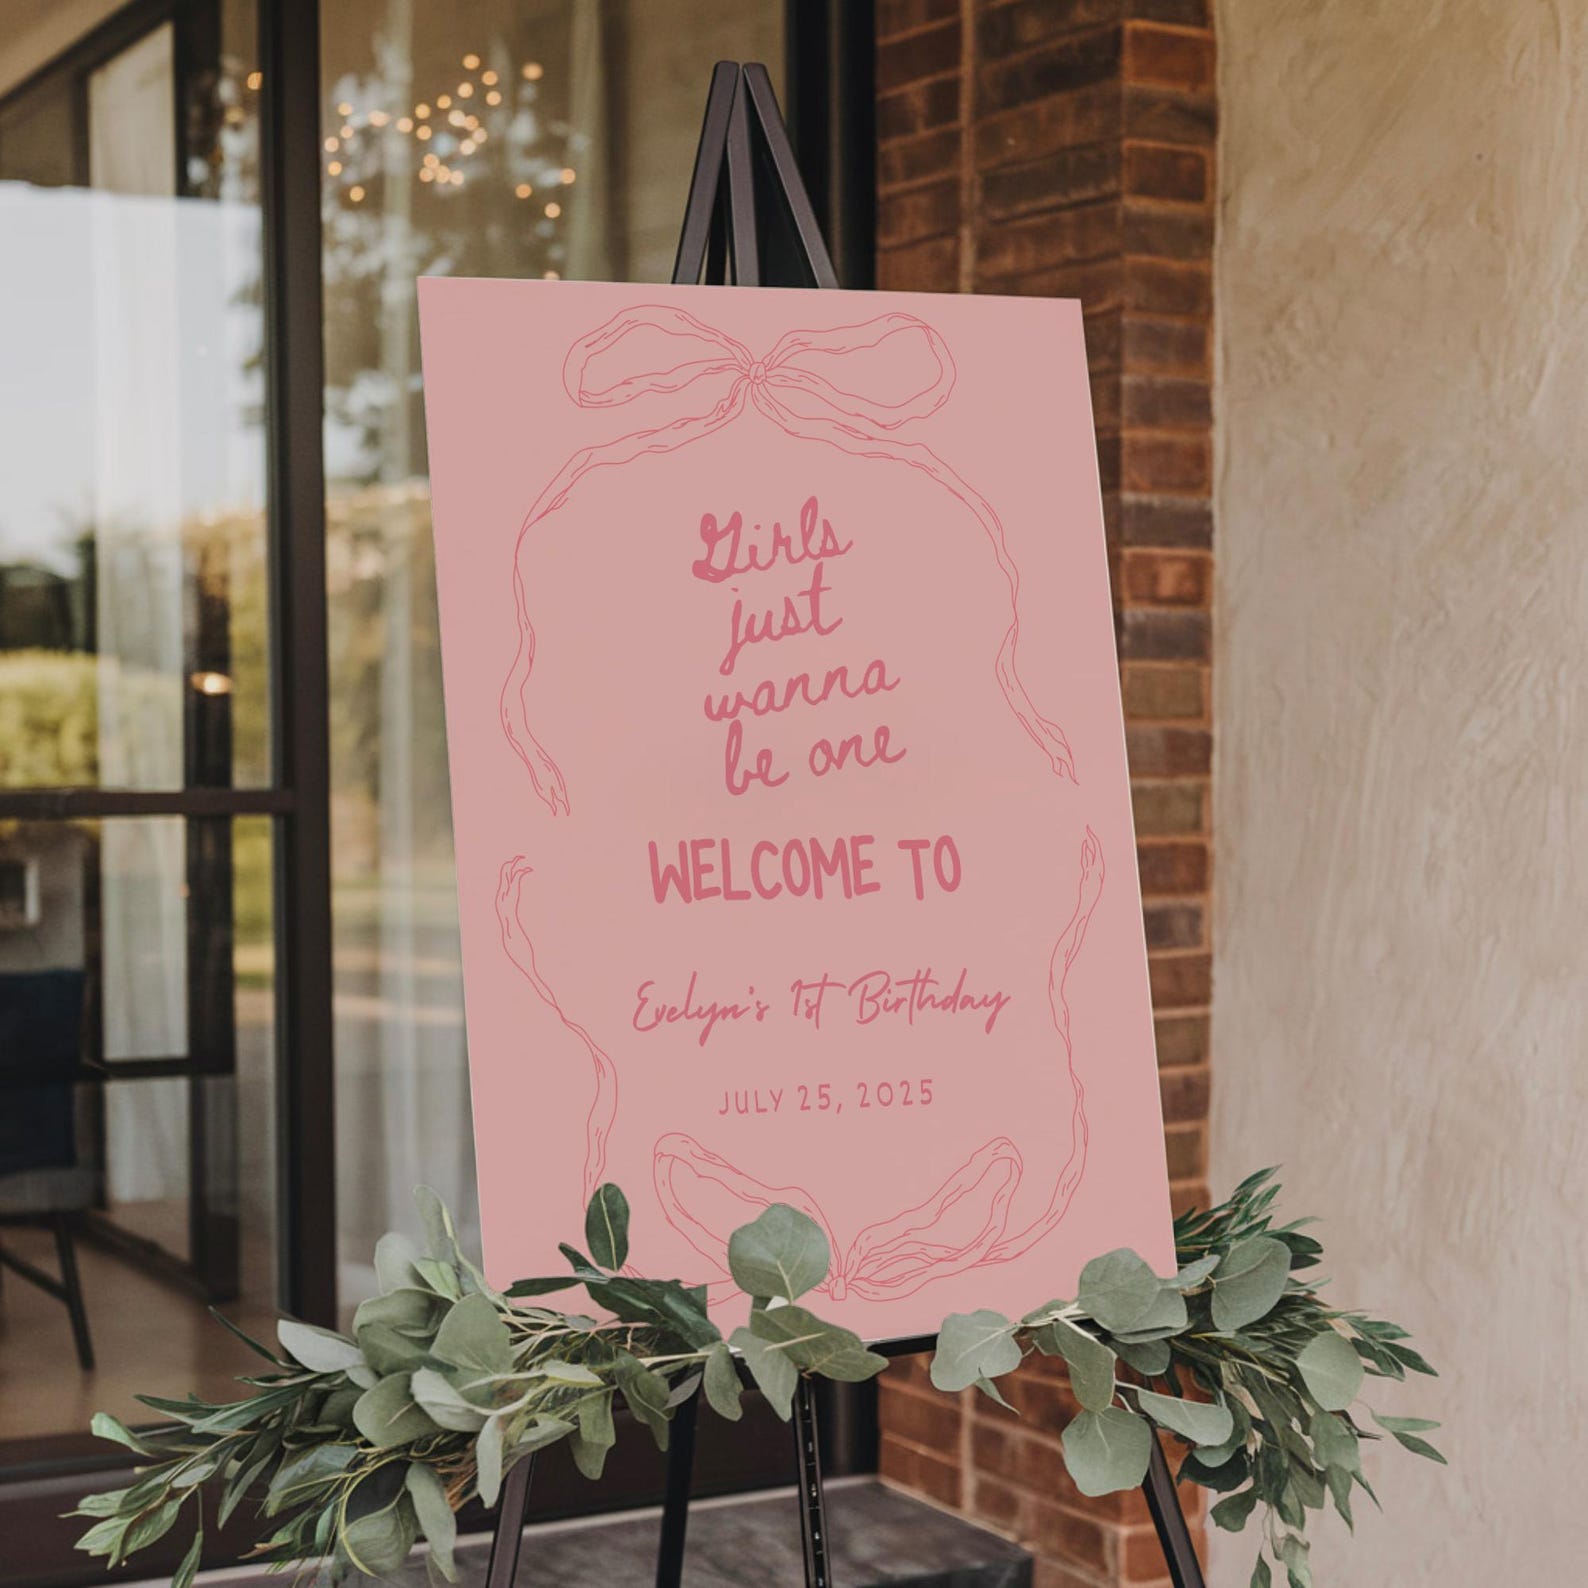 Girls
just
wanna
be one
WELCOME TO
Evelyn's 1st Birthday
JULY 25, 2025